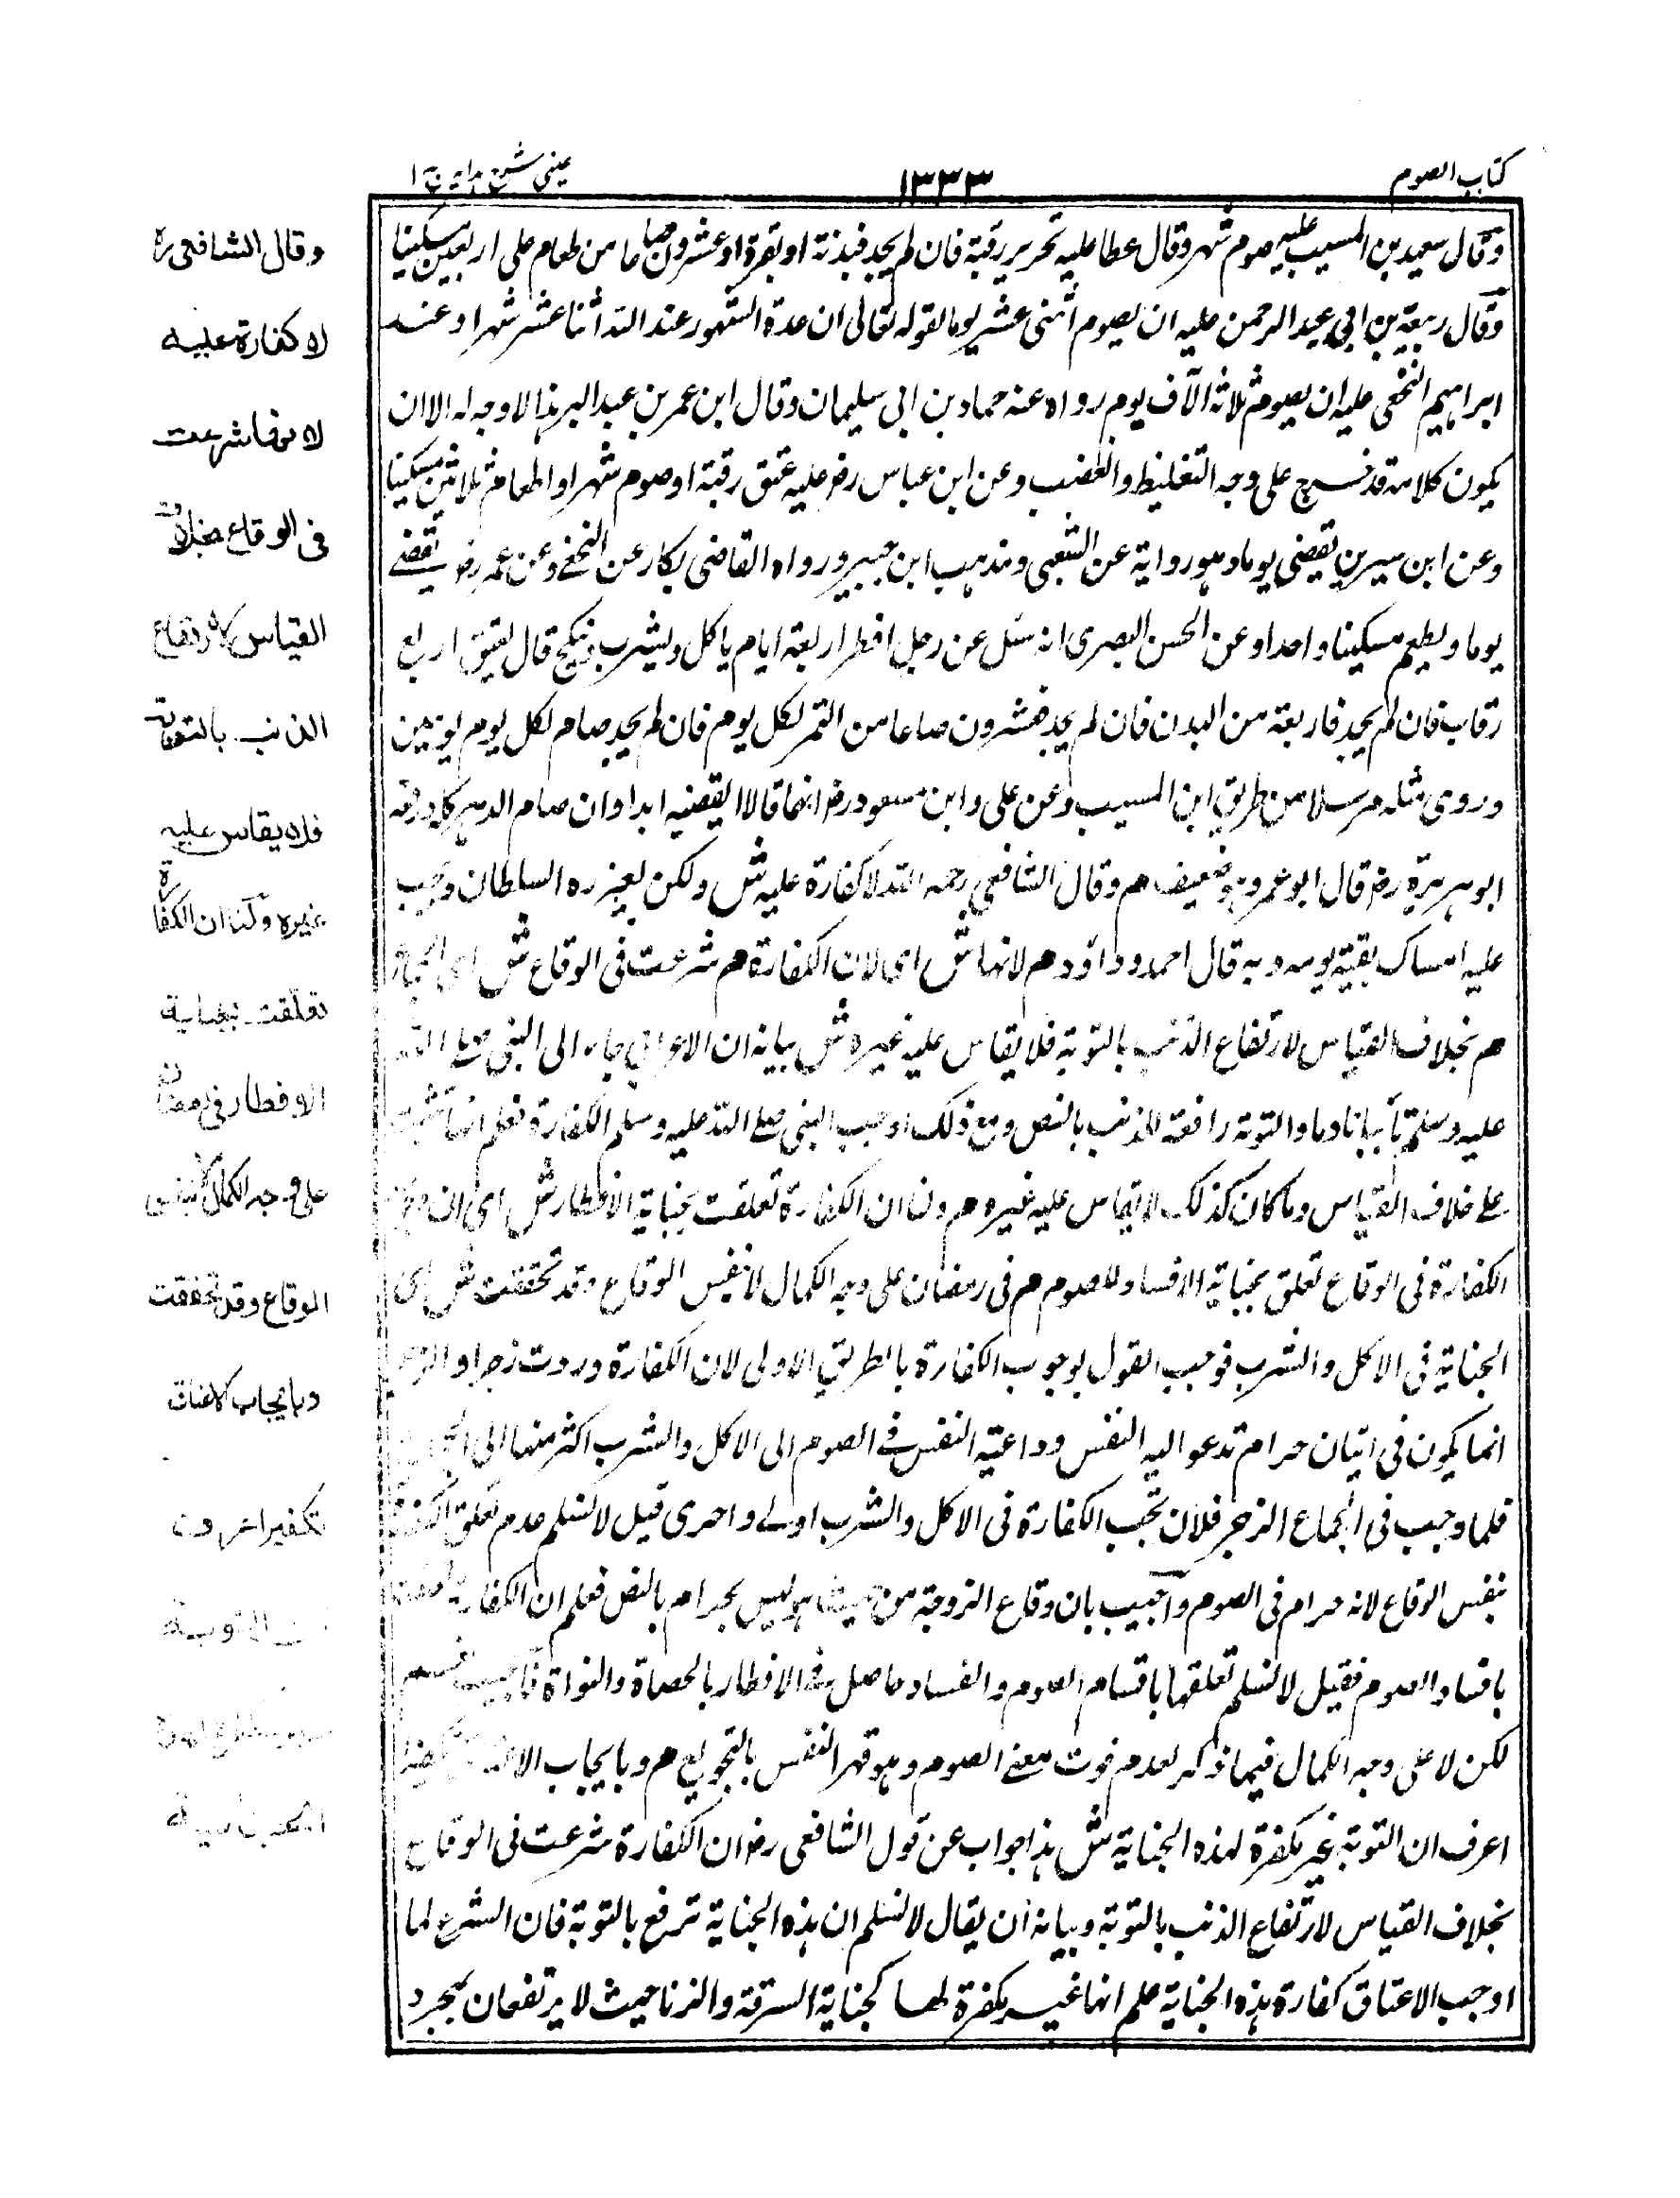 كتاب الصوم
١٣٣٣
عينى شرح هدايه ج ١
وقال سعيد بن المسيب عليه صوم شهر وقال عطا عليه تحرير رقبة فان لم يجد فبدنة او بقرة او عشرون صاعا من طعام على اربعين مسكينا
وقال ربيعة بن ابي عبد الرحمن عليه ان يصوم اثنى عشر يوما لقوله تعالى ان عدة الشهور عند الله اثنا عشر شهرا وعند
ابراهيم النخعى عليه ان يصوم ثلاثة الآف يوم رواه عنه حماد بن ابى سليمان وقال ابن عمر بن عبد البر هذا لا وجه له الا ان
يكون كلامه قد خرج على وجه التغليظ والغضب وعن ابن عباس رضه عليه عتق رقبة او صوم شهر او اطعام ثلاثين مسكينا
وعن ابن سيرين يقضى يوما وهو رواية عن الشعبى ومذهب ابن جبير ورواه القاضى بكار عن النخعى وعن عمر رضه يقضے
يوما ويطعم مسكينا واحدا وعن الحسن البصرى انه سئل عن رجل افطر اربعة ايام ياكل ويشرب وينكح قال يعتق اربع
رقاب فان لم يجد فاربعة من البدن فان لم يجد فعشرون صاعا من التمر لكل يوم فان لم يجد صام لكل يوم يومين
وروى مثله مرسلا من طريق ابن المسيب وعن على وابن مسعود رضه انهما قالا لا يقضيه ابدا وان صام الدهر كله ورفعه
ابو هريرة رضه قال ابو عمر وهو ضعيف هم وقال الشافعى رحمه الله لا كفارة عليه ش ولكن يعزره السلطان ويجب
عليه امساك بقية يومه وبه قال احمد وداؤد هم لانها ش اى لان الكفارة هم شرعت فى الوقاع ش اى الجماع
هم بخلاف القياس لارتفاع الذنب بالتوبة فلا يقاس عليه غيره ش بيانه ان الاعرابي جاء الى النبى صلے الله
عليه وسلم تائبا نادما والتوبة رافعة للذنب بالنص ومع ذلك اوجب النبى صلے الله عليه وسلم الكفارة فعلم انها تثبت
علے خلاف القياس وما كان كذلك لا يقاس عليه غيره هم ولنا ان الكفارة تعلقت بجناية الافطار ش اى ان
الكفارة فى الوقاع تعلق بجناية الافساد للصوم هم فى رمضان على وجه الكمال لا نفس الوقاع وقد تحققت ش اى
الجناية فى الاكل والشرب فوجب القول بوجوب الكفارة بالطريق الاولى لان الكفارة وردت زجرا والزجر
انما يكون فى اتيان حرام تدعو اليه النفس وداعية النفس فے الصوم الى الاكل والشرب اكثر منها الى الجماع
فلما وجب فى الجماع الزجر فلان تجب الكفارة فى الاكل والشرب اولے واحرى قيل لا نسلم عدم تعلق الكفارة
بنفس الوقاع لانه حرام فى الصوم واجيب بان وقاع الزوجة من حيث هو ليس بحرام بالنص فعلم ان الكفارة تعلقت
بافساد الصوم فقيل لا نسلم تعلقها باقسام الصوم والفساد حاصل فے الافطار بالحصاة والنواة فاجيب نعم
لكن لا على وجه الكمال فيما ذكر لعدم فوت معنے الصوم وهو قهر النفس بالتجويع هم وبايجاب الاعتاق تكفيرا
اعرف ان التوبة غير مكفرة لهذه الجناية ش هذا جواب عن قول الشافعى رضه ان الكفارة شرعت فى الوقاع
بخلاف القياس لارتفاع الذنب بالتوبة وبيانه ان يقال لا نسلم ان هذه الجناية ترفع بالتوبة فان الشرع لما
اوجب الاعتاق كفارة هذه الجناية علم انها غير مكفرة لها كجناية السرقة والزنا حيث لا يرتفعان بمجرد
وقال الشافعى ره
لا كفارة عليه
لانها شرعت
فى الوقاع بخلاف
القياس لارتفاع
الذنب بالتوبة
فلا يقاس عليه
غيره ولنا ان الكفارة
تعلقت بجناية
الافطار فى رمضان
على وجه الكمال لا بنفس
الوقاع وقد تحققت
وبايجاب الاعتاق
تكفيرا عرف ان
التوبة
غير مكفرة لهذه
الجناية